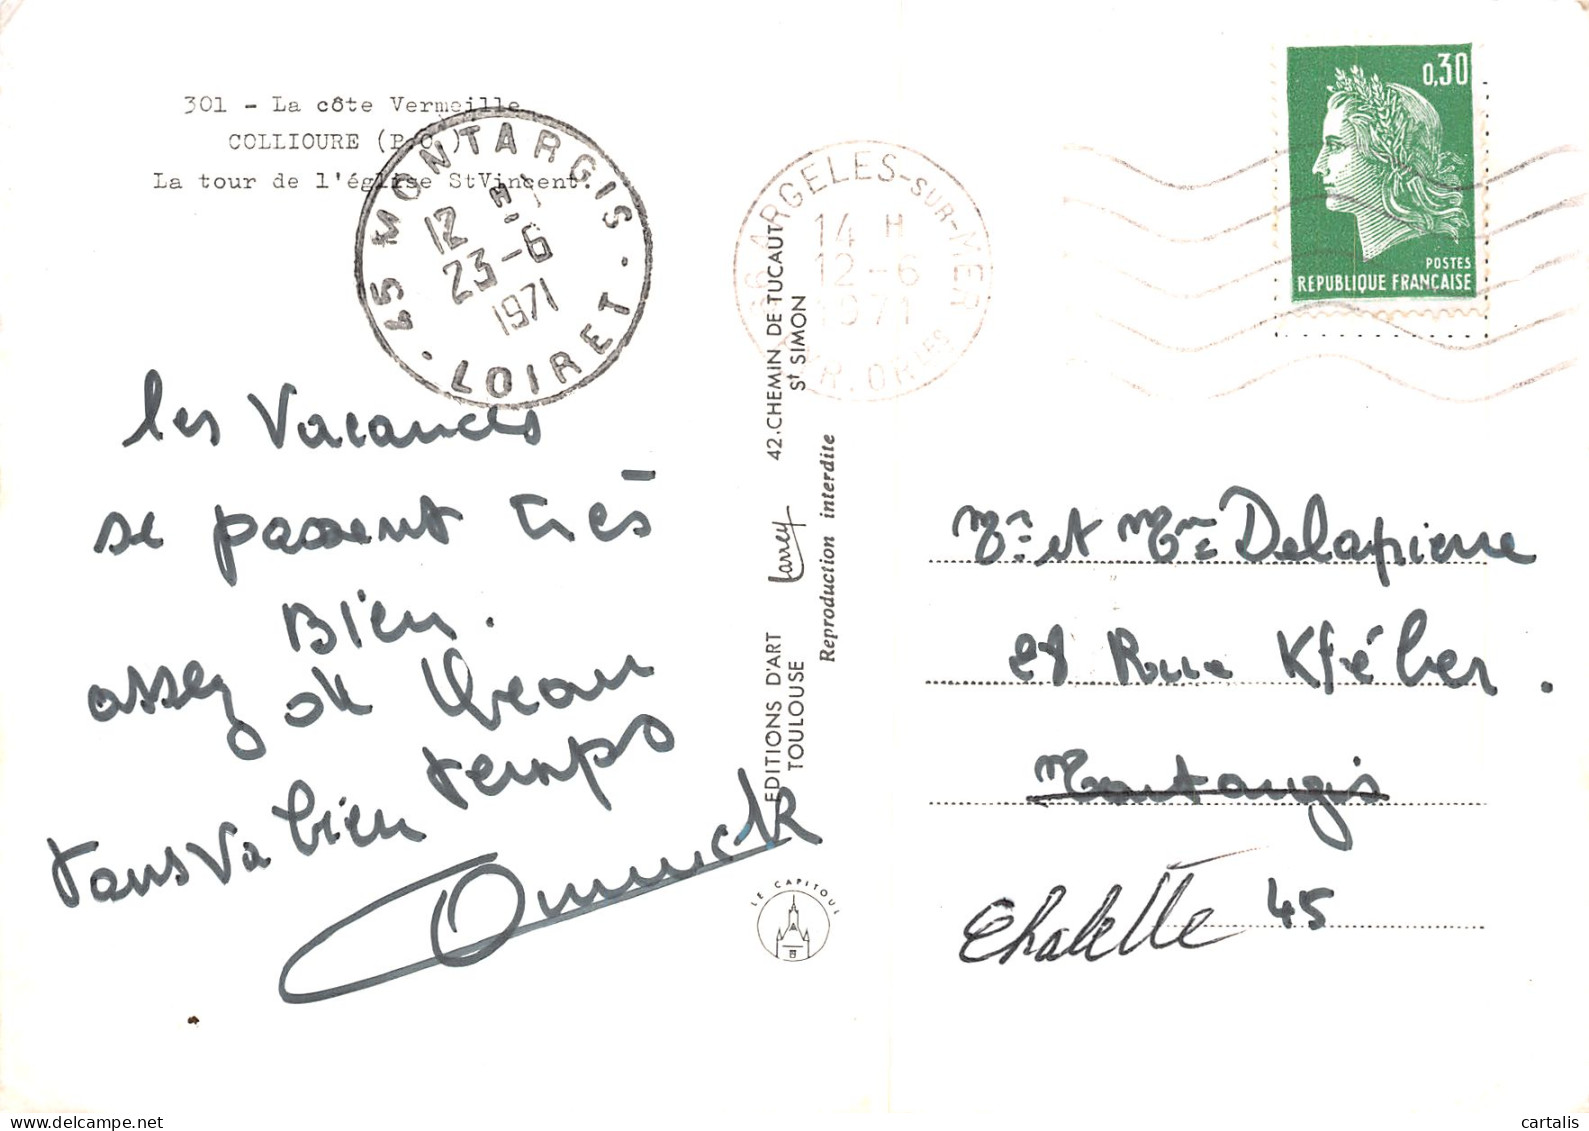 301 - La côte Vermeille
COLLIOURE (P.O.)
La tour de l'église StVincent.
45 MONTARGIS
12 H
23-6
1971
LOIRET
66 ARGELES-SUR-MER
14 H
12-6
1971
PYR. ORles
0,30
POSTES
REPUBLIQUE FRANÇAISE
les Vacances
se passent très
Bien.
assez beau
temps
tout va bien
EDITIONS D'ART Larrey 42.CHEMIN DE TUCAUT
TOULOUSE St SIMON
Reproduction interdite
LE CAPITOUL
Mr et Mme Delapierre
28 Rue Kléber.
Montargis
Chalette 45
cartalis
delcampe.net